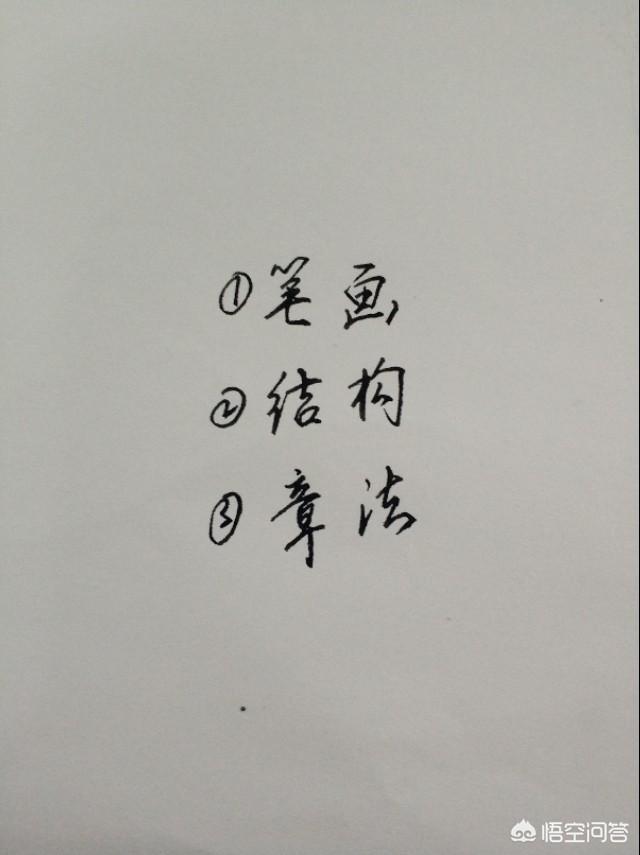 ①笔画
②结构
③章法
悟空问答